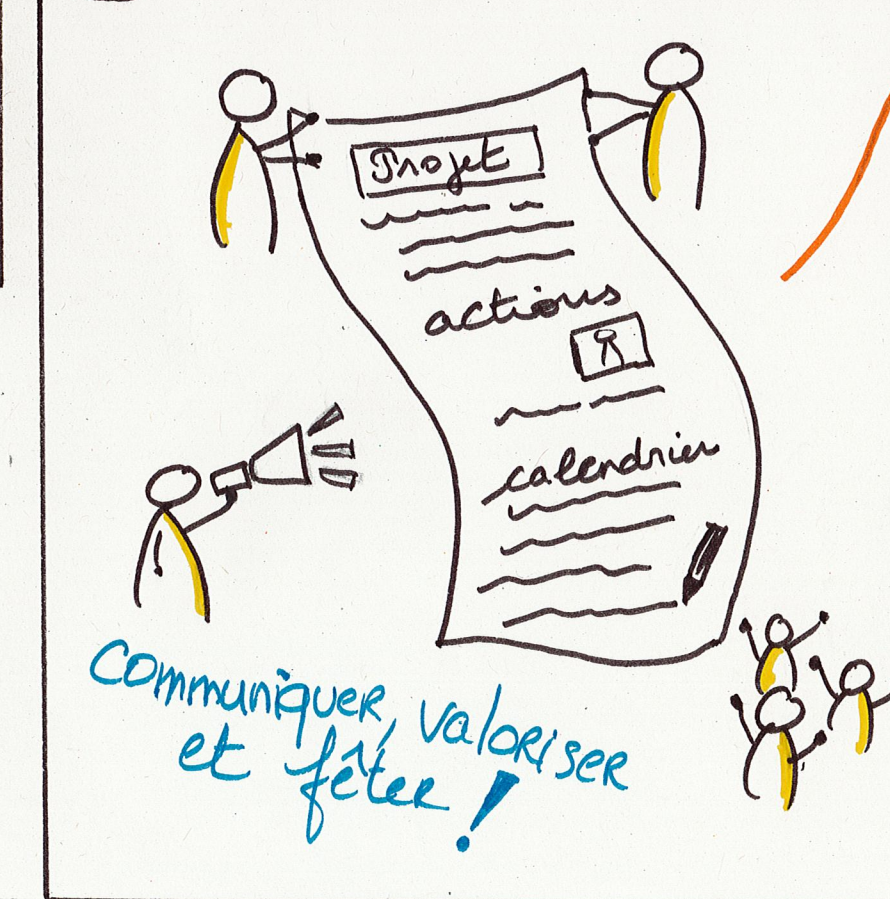 Projet
actions
calendrier
Communiquer, valoriser
et fêter !